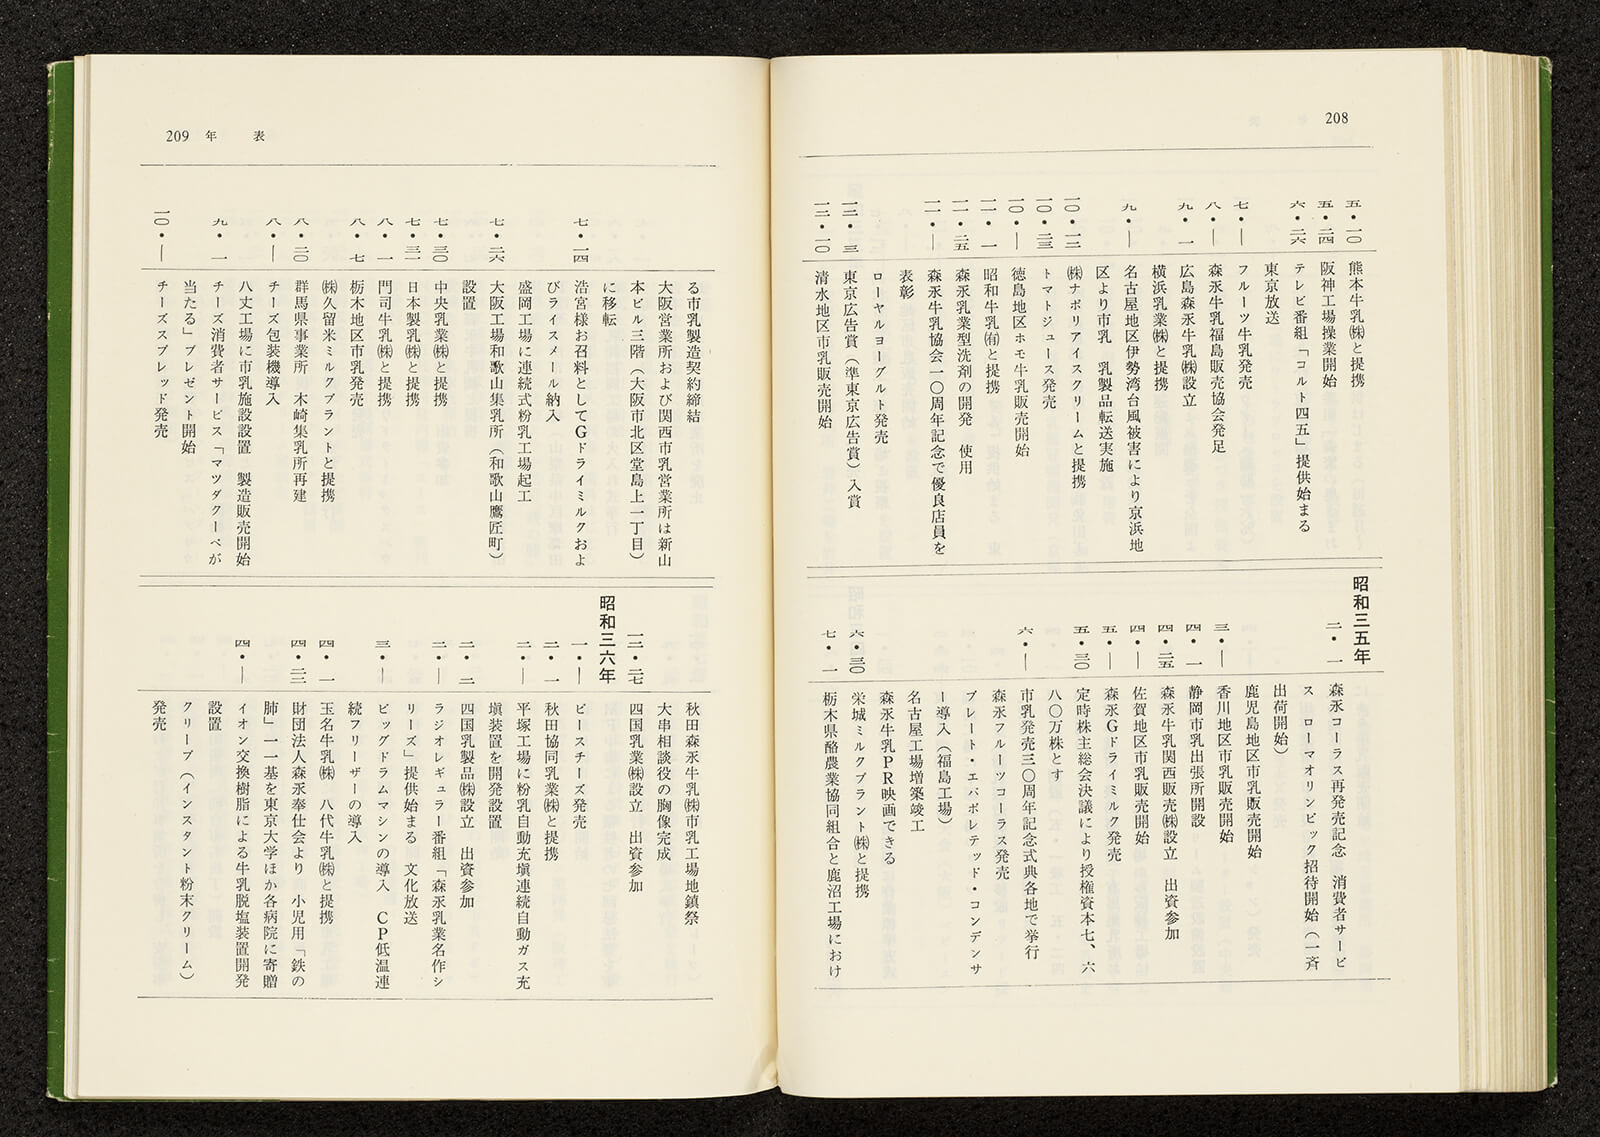 208
五・一〇
熊本牛乳㈱と提携
五・二四
阪神工場操業開始
六・二六
テレビ番組「コルト四五」提供始まる
東京放送
七・―
フルーツ牛乳発売
八・―
森永牛乳福島販売協会発足
九・一
広島森永牛乳㈱設立
横浜乳業㈱と提携
九・―
名古屋地区伊勢湾台風被害により京浜地
区より市乳　乳製品転送実施
一〇・一二
㈱ナポリアイスクリームと提携
一〇・二三
トマトジュース発売
一〇・―
徳島地区ホモ牛乳販売開始
一一・一
昭和牛乳㈲と提携
一一・二五
森永乳業型洗剤の開発　使用
一一・―
森永牛乳協会一〇周年記念で優良店員を
表彰
ローヤルヨーグルト発売
一二・三
東京広告賞（準東京広告賞）入賞
一二・一〇
清水地区市乳販売開始
昭和三五年
二・一
森永コーラス再発売記念　消費者サービ
ス　ローマオリンピック招待開始（一斉
出荷開始）
鹿児島地区市乳販売開始
三・―
香川地区市乳販売開始
四・一
静岡市乳出張所開設
四・二五
森永牛乳関西販売㈱設立　出資参加
四・―
佐賀地区市乳販売開始
五・―
森永Gドライミルク発売
五・三〇
定時株主総会決議により授権資本七、六
八〇万株とす
六・―
市乳発売三〇周年記念式典各地で挙行
森永フルーツコーラス発売
プレート・エバポレテッド・コンデンサ
ー導入（福島工場）
名古屋工場増築竣工
森永牛乳PR映画できる
六・三〇
栄城ミルクプラント㈱と提携
七・一
栃木県酪農業協同組合と鹿沼工場におけ
209　年　表
る市乳製造契約締結
大阪営業所および関西市乳営業所は新山
本ビル三階（大阪市北区堂島上一丁目）
に移転
七・一四
浩宮様お召料としてGドライミルクおよ
びライスメール納入
盛岡工場に連続式粉乳工場起工
七・二六
大阪工場和歌山集乳所（和歌山鷹匠町）
設置
七・三〇
中央乳業㈱と提携
七・三一
日本製乳㈱と提携
八・一
門司牛乳㈱と提携
八・七
栃木地区市乳発売
㈱久留米ミルクプラントと提携
八・二〇
群馬県事業所　木崎集乳所再建
八・―
チーズ包装機導入
八丈工場に市乳施設設置　製造販売開始
九・一
チーズ消費者サービス「マツダクーペが
当たる」プレゼント開始
一〇・―
チーズスプレッド発売
秋田森永牛乳㈱市乳工場地鎮祭
大串相談役の胸像完成
一二・二七
四国乳業㈱設立　出資参加
昭和三六年
一・―
ピースチーズ発売
二・一
秋田協同乳業㈱と提携
二・―
平塚工場に粉乳自動充塡連続自動ガス充
塡装置を開発設置
二・二
四国乳製品㈱設立　出資参加
二・―
ラジオレギュラー番組「森永乳業名作シ
リーズ」提供始まる　文化放送
三・―
ビッグドラムマシンの導入　CP低温連
続フリーザーの導入
四・一
玉名牛乳㈱　八代牛乳㈱と提携
四・二三
財団法人森永奉仕会より　小児用「鉄の
肺」一一基を東京大学ほか各病院に寄贈
四・―
イオン交換樹脂による牛乳脱塩装置開発
設置
クリープ（インスタント粉末クリーム）
発売